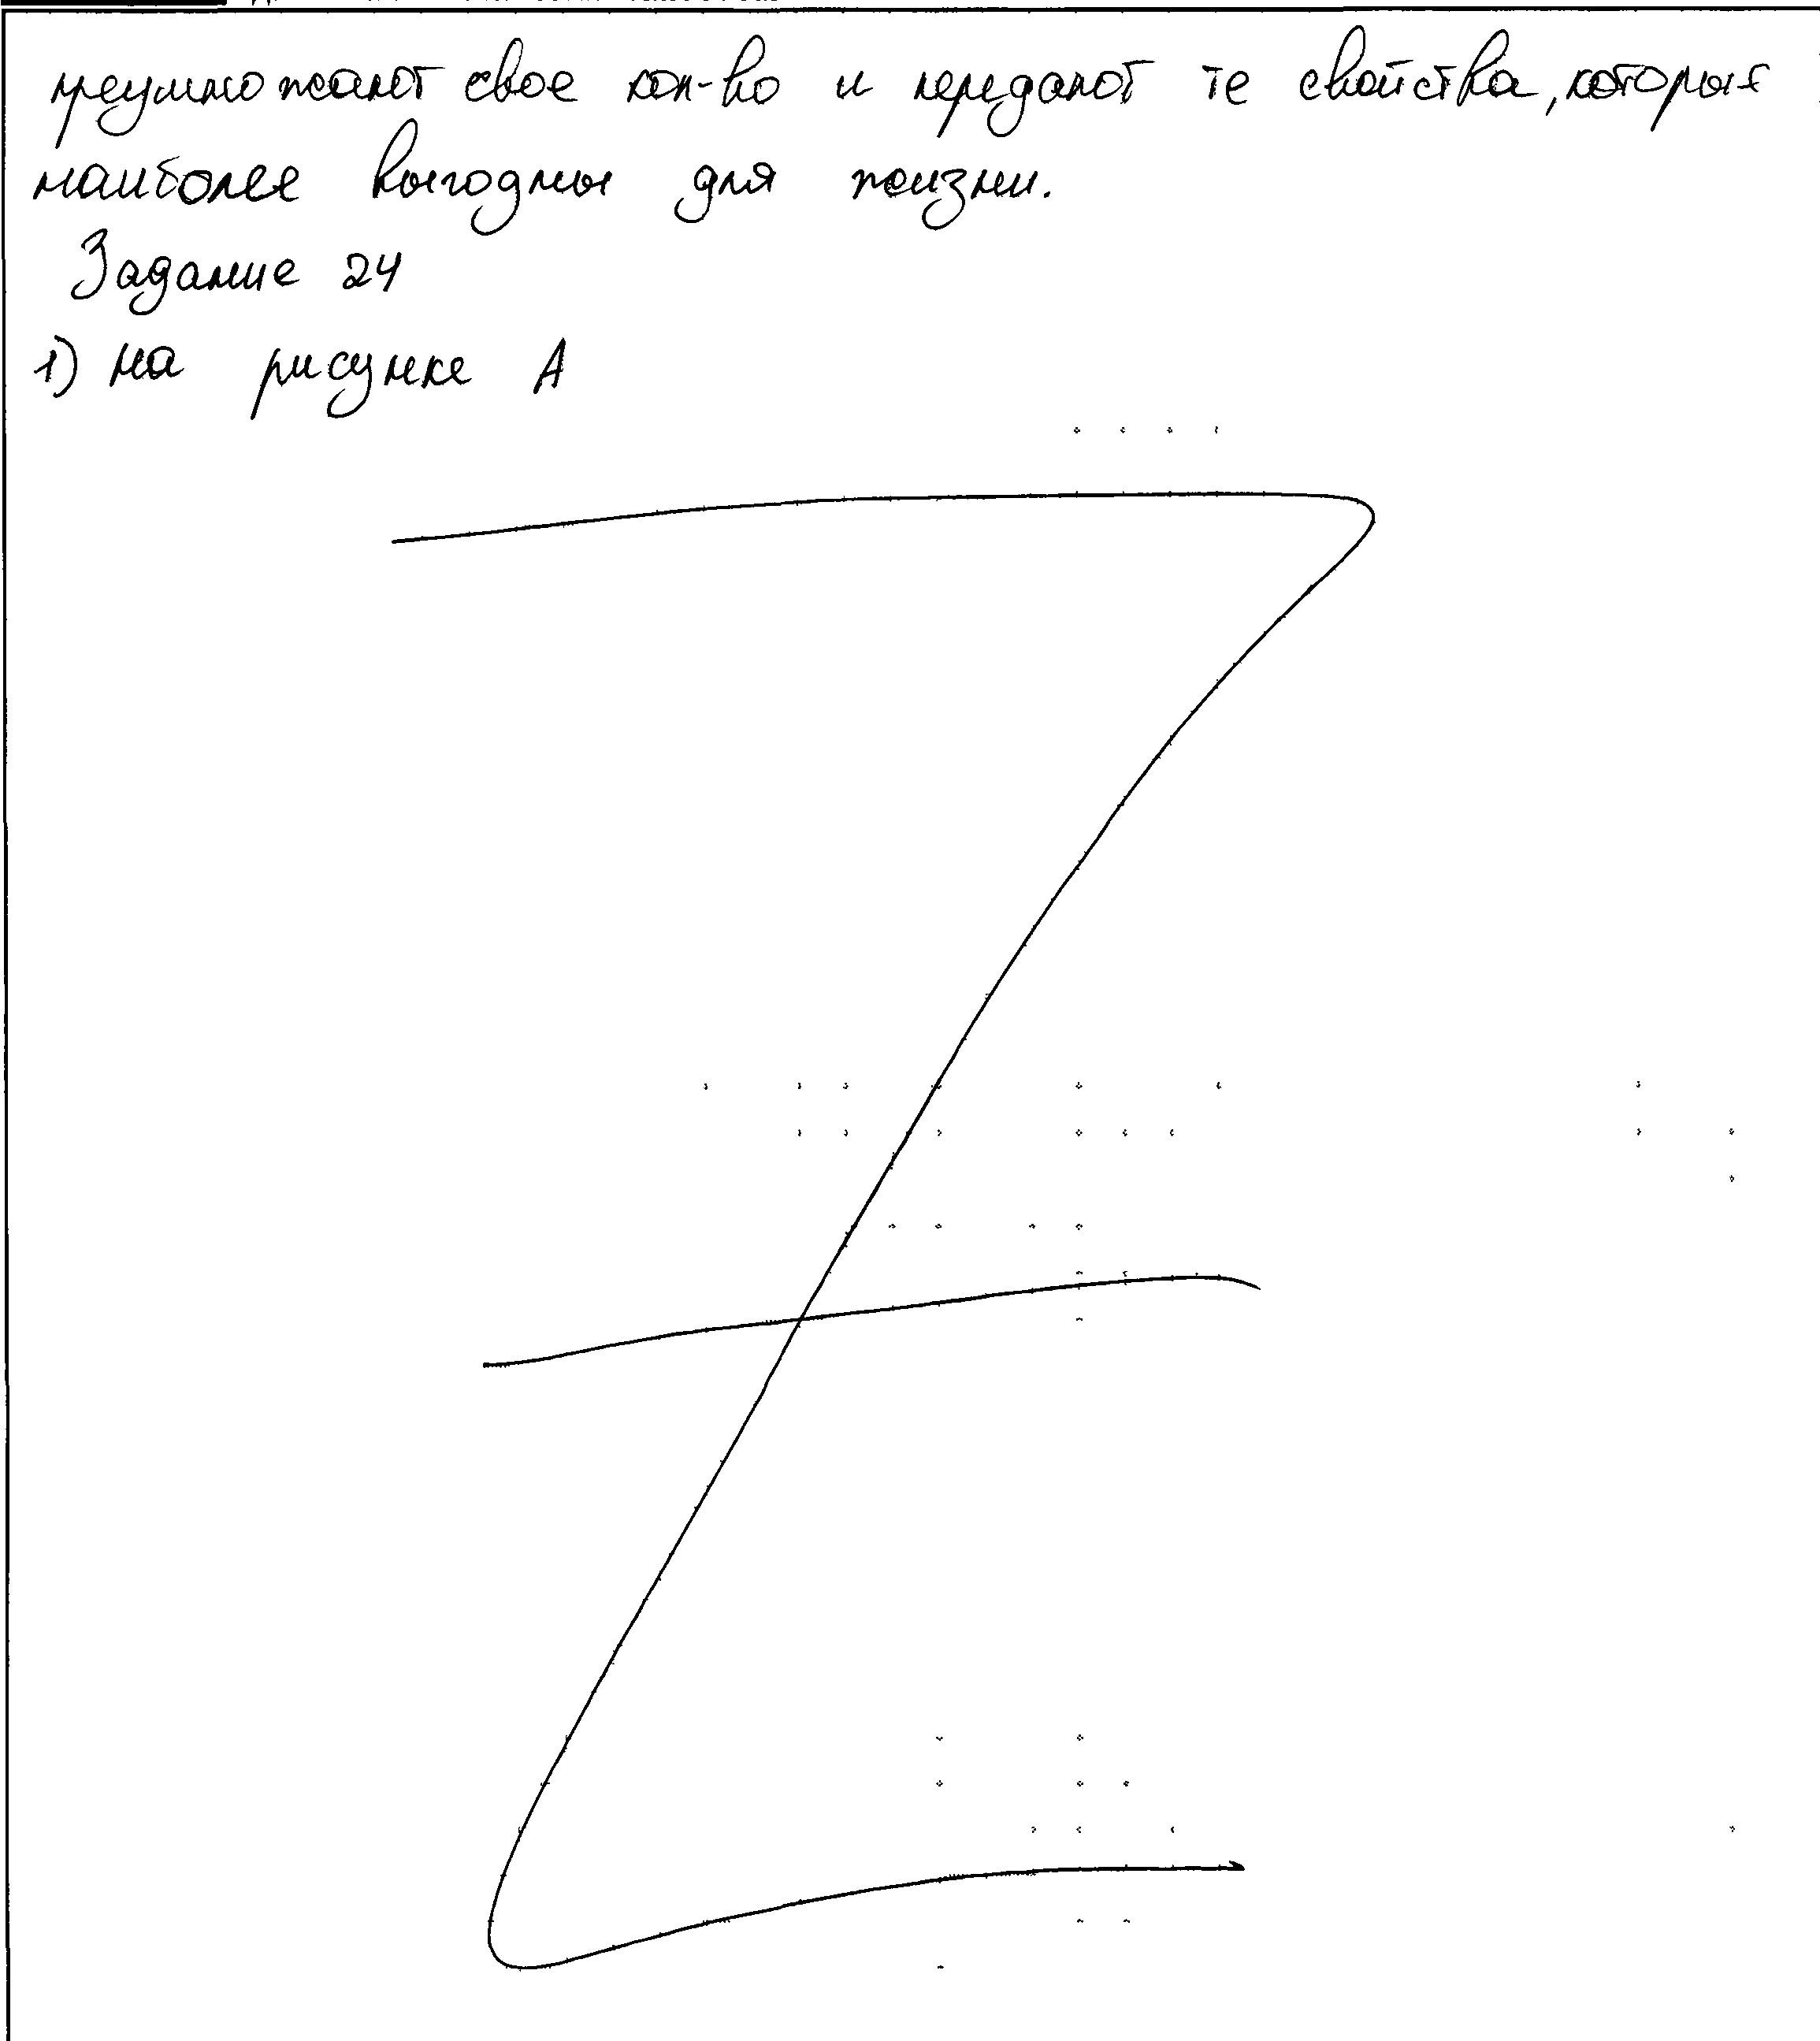 преумножают свое кол-во и передают те свойства, которые
наиболее выгодны для жизни.
Задание 24
1) на рисунке А